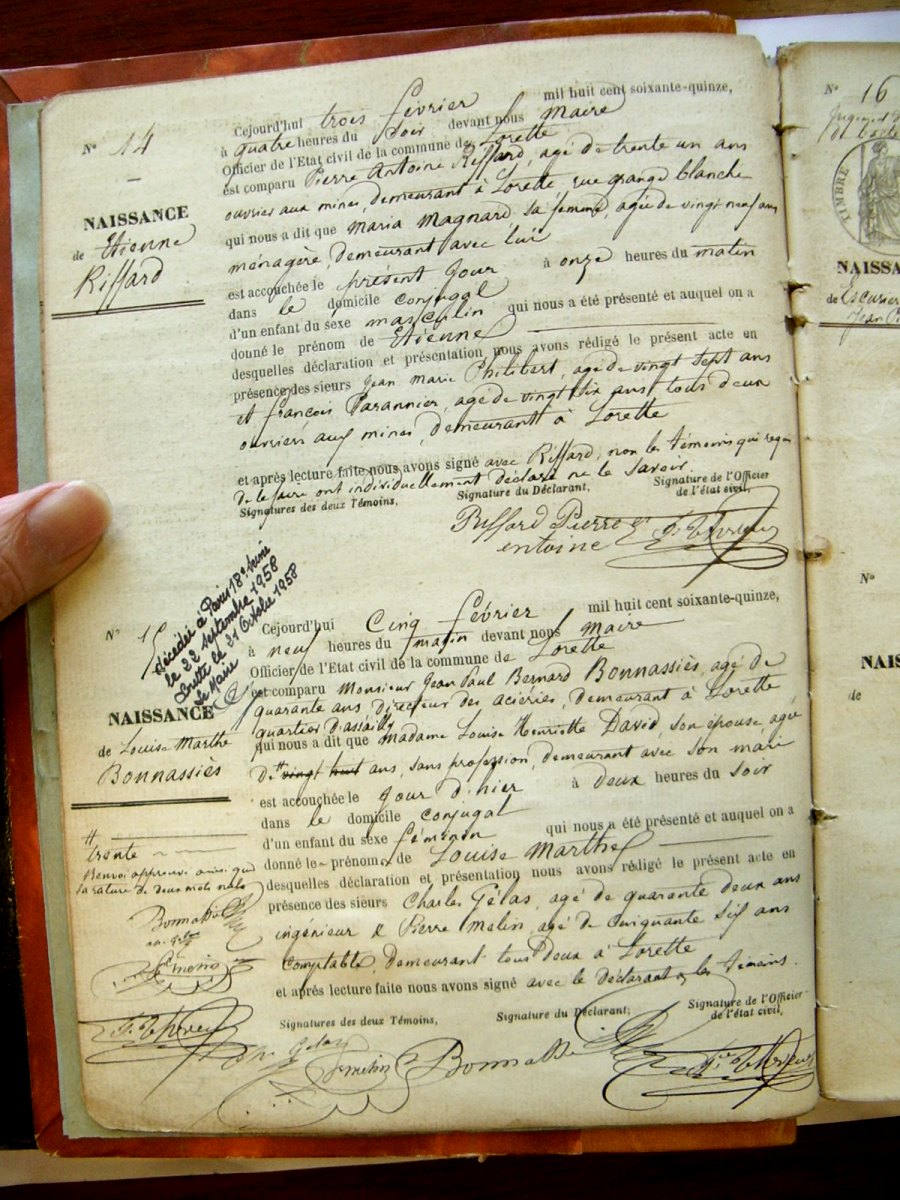 N° 14
NAISSANCE
de Etienne
Riffard
Cejourd'hui trois février mil huit cent soixante-quinze,
à quatre heures du soir devant nous Maire
Officier de l'Etat civil de la commune de Lorette
est comparu Pierre Antoine Riffard, agé de trente un ans
ouvrier aux mines, demeurant à Lorette rue grange blanche
qui nous a dit que Maria Magnard, sa femme, agée de vingt neuf ans
ménagère, demeurant avec lui
est accouchée le présent jour à onze heures du matin
dans le domicile conjugal
d'un enfant du sexe masculin qui nous a été présenté et auquel on a
donné le prénom de Etienne
desquelles déclaration et présentation nous avons rédigé le présent acte en
présence des sieurs Jean Marie Philibert, agé de vingt sept ans
et françois Parannier, agé de vingt six ans, tous deux
ouvriers aux mines, demeurant à Lorette
et après lecture faite nous avons signé avec Riffard, non les témoins qui requis
de le faire ont individuellement déclaré ne le savoir.
Signatures des deux Témoins, Signature du Déclarant, Signature de l'Officier
de l'état civil,
Riffard Pierre
entoine
N° 15
Décédée à Paris 18e
le 22 septembre 1958
le 31 Octobre 1958
Le Maire
NAISSANCE
de Louise Marthe
Bonnassiès
Cejourd'hui Cinq février mil huit cent soixante-quinze,
à neuf heures du matin devant nous Maire
Officier de l'Etat civil de la commune de Lorette
est comparu Monsieur Jean Paul Bernard Bonnassiès, agé de
quarante ans Directeur des aciéries, demeurant à Lorette
quartier d'assailly
qui nous a dit que Madame Louise Henriette David, son épouse agée
de # vingt huit ans, sans profession, demeurant avec son mari
est accouchée le jour d'hier à deux heures du soir
dans le domicile conjugal
d'un enfant du sexe féminin qui nous a été présenté et auquel on a
donné le prénom de Louise Marthe
desquelles déclaration et présentation nous avons rédigé le présent acte en
présence des sieurs Charles Gélas, agé de quarante deux ans
ingénieur & Pierre melin, agé de Cinquante six ans
Comptable, demeurant tous deux à Lorette
et après lecture faite nous avons signé avec le déclarant & les témoins.
Signatures des deux Témoins, Signature du Déclarant, Signature de l'Officier
de l'état civil,
#
trente
Renvoi approuvé ainsi que
la rature de deux mots nuls
N° 16
TIMBRE
NAISSA
de Escurier
Jean
N°
NAIS
de